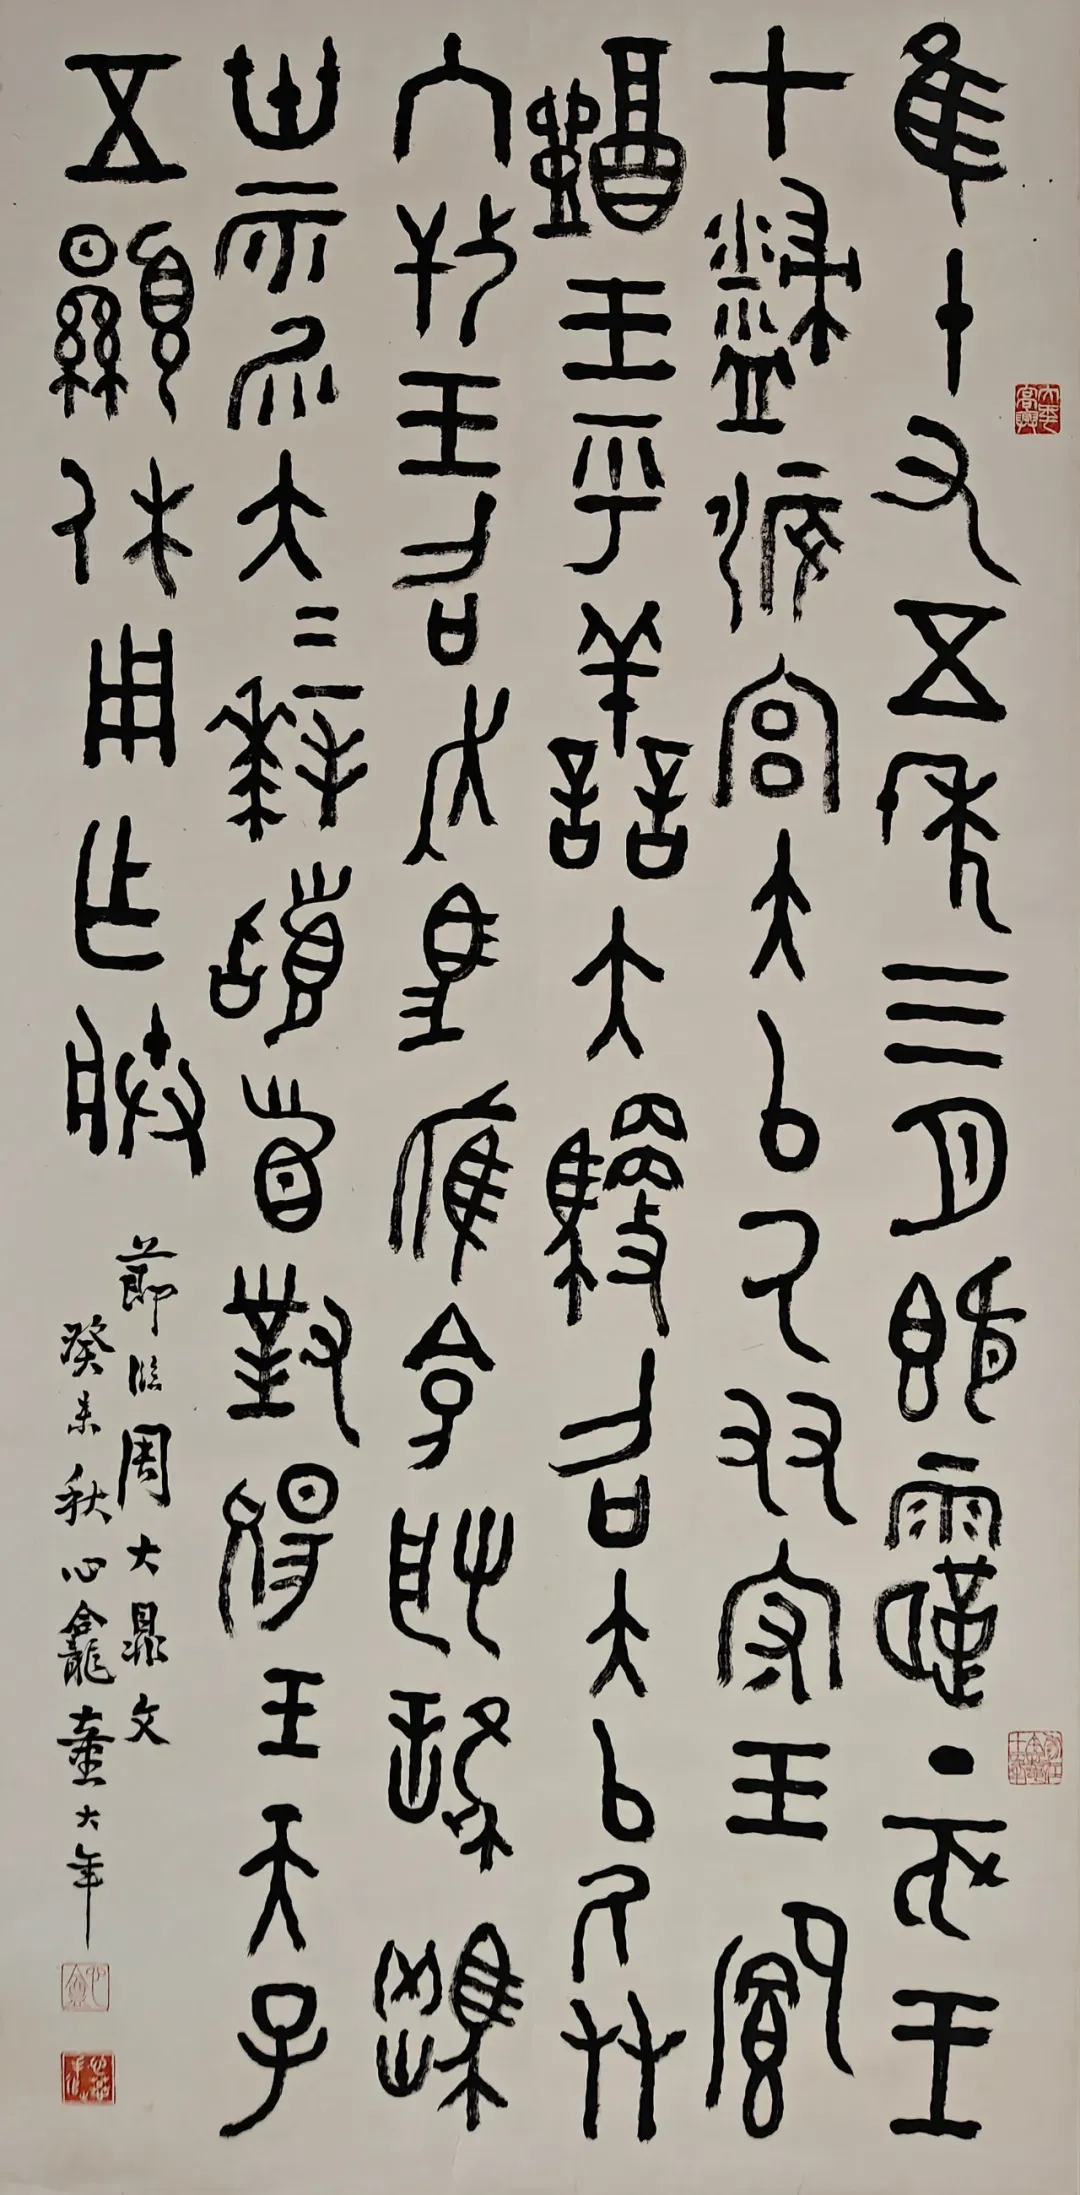 隹十又五年三月既霸丁亥王
才𥎦侲宮大以厥友守王鄉
醴王乎譱大𩦂召大以厥友
入攼王召走馬雁令取
卅二匹易大大拜𩒨首對揚王天子
不顯休用乍朕
節臨周大鼎文
癸未秋心龕童大年